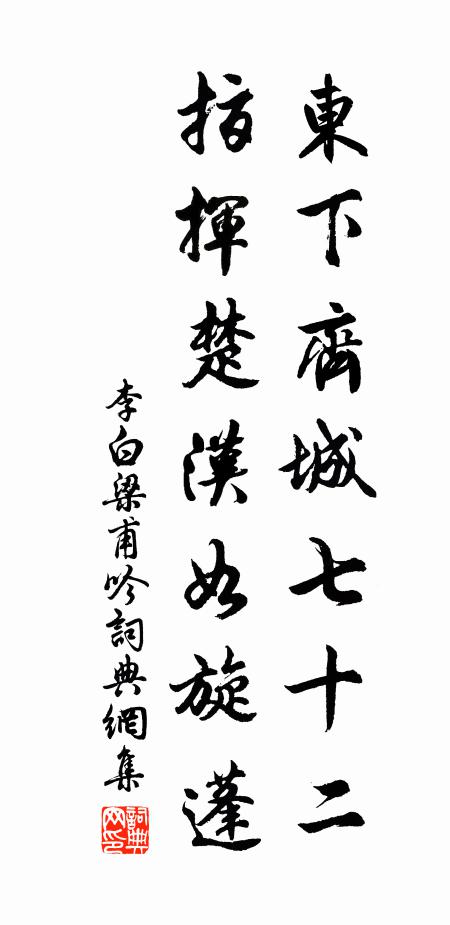 東下齊城七十二
指揮楚漢如旋蓬
李白梁甫吟詞典網集
詞典網印